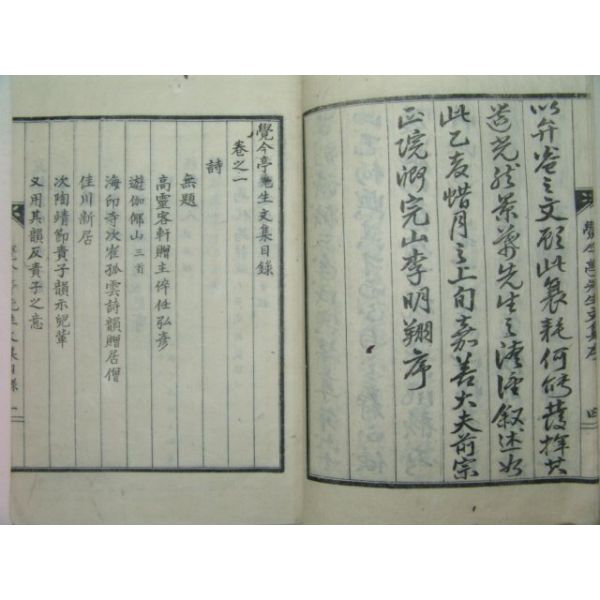 以弁卷之文顧此衰耗何能發揮其
此乙亥惜月之上旬嘉善大夫前宗
正院卿完山李明翔序
覺今亭先生文集序
四
覺今亭先生文集目錄
卷之一
詩
無題
高靈客軒贈主倅任弘彥
遊伽倻山三首
海印寺次崔孤雲詩韻贈居僧
佳川新居
次陶靖節責子韻示兒輩
又用其韻反責子之意
覺今亭先生文集目錄
一